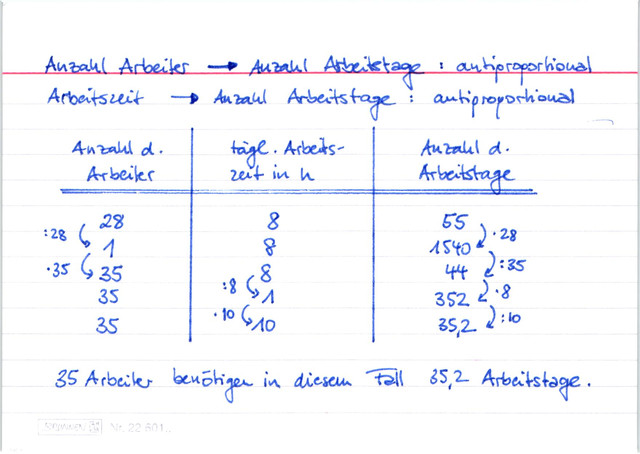 Anzahl Arbeiter → Anzahl Arbeitstage : antiproportional
Arbeitszeit → Anzahl Arbeitstage : antiproportional
Anzahl d. Arbeiter tägl. Arbeits- Anzahl d.
Arbeiter zeit in h Arbeitstage
28 8 55
:28 ·28
1 8 1540
·35 :35
35 8 44
:8 ·8
35 1 352
·10 :10
35 10 35,2
35 Arbeiter benötigen in diesem Fall 35,2 Arbeitstage.
Nr. 22 801